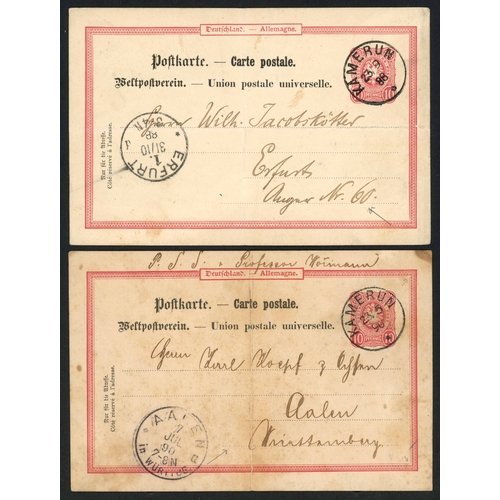 Deutschland. — Allemagne.
Postkarte. — Carte postale.
Weltpostverein. — Union postale universelle.
KAMERUN
88
10
PFENNIG
Herrn Wilh. Jacobskötter
Erfurt
Anger Nr. 60.
ERFURT
1.
31/10
88
Nur für die Adresse.
Côté réservé à l'adresse.
P. S. S. "Professor Woermann
Deutschland. — Allemagne.
Postkarte. — Carte postale.
Weltpostverein. — Union postale universelle.
KAMERUN
10
Herrn Karl Hoepf z Ochsen
Aalen
Württemberg
AALEN
JUL
90
7-8N
in WÜRTTBG.
Nur für die Adresse.
Côté réservé à l'adresse.